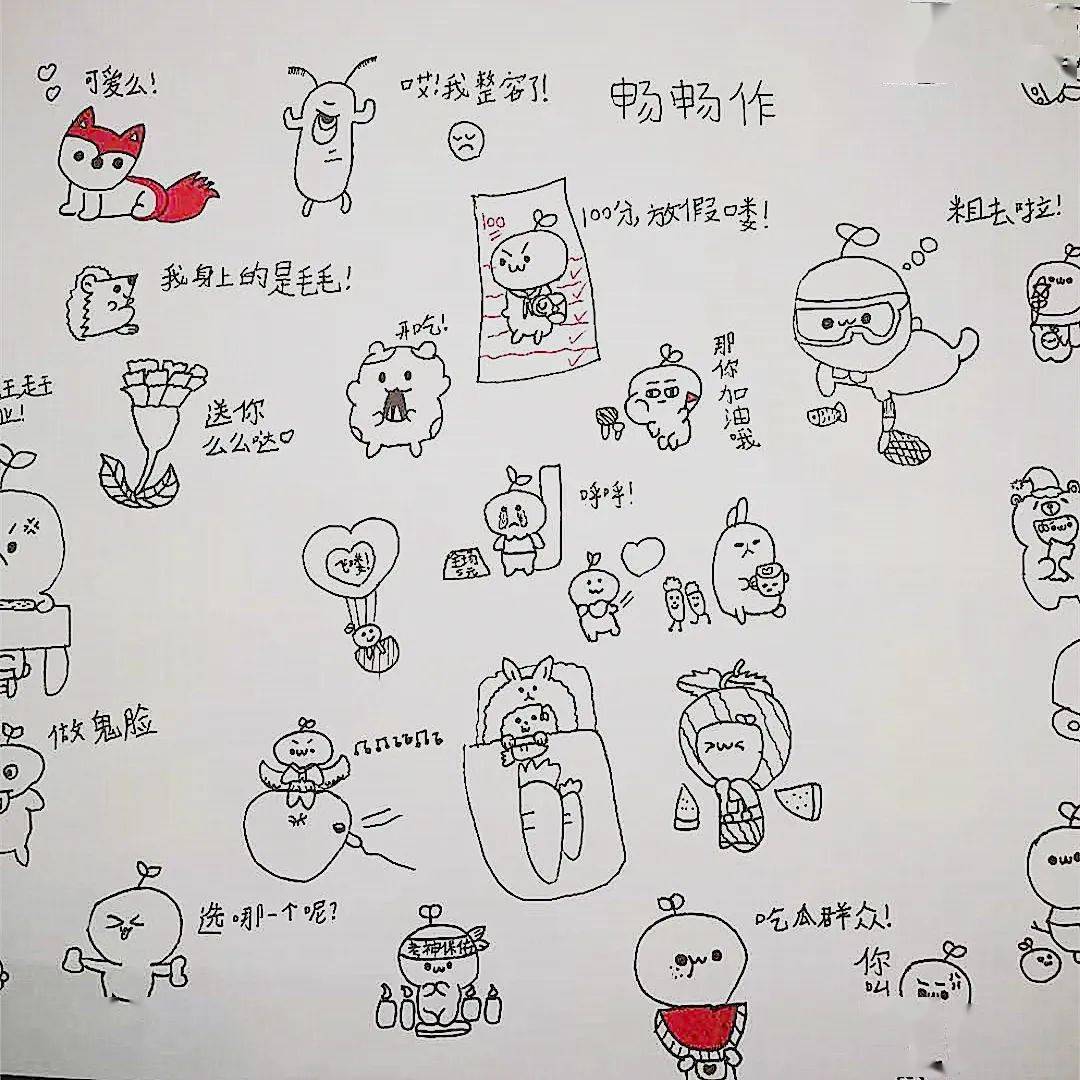 可爱么!
哎!我整容了!
畅畅作
100
100分,放假喽!
粗去啦!
我身上的是毛毛!
开吃!
那你加油哦
送你
么么哒
呼呼!
飞喽!
做鬼脸
选哪一个呢?
考神保佑
吃瓜群众!
你
叫